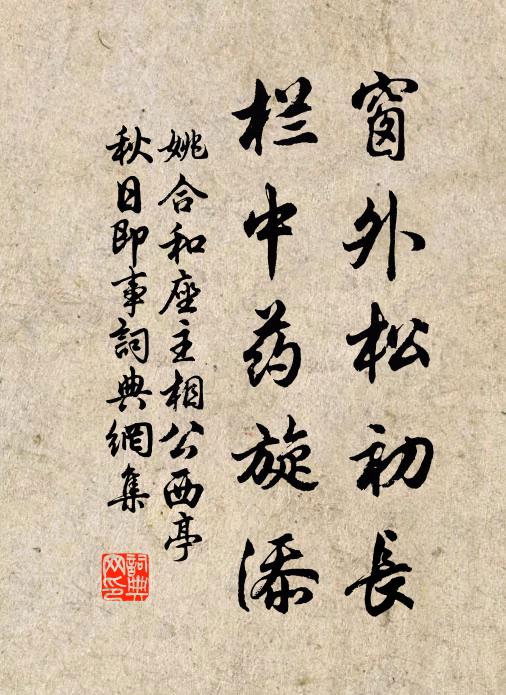 窗外松初長
栏中药旋添
姚合和座主相公西亭
秋日即事詞典網集
詞典
网印